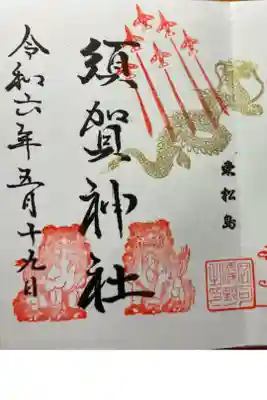 東松島
須賀神社
令和六年五月十九日